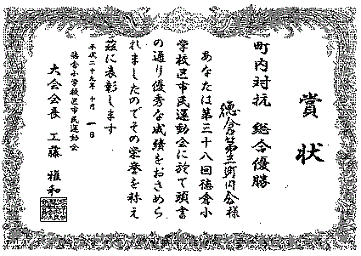 賞状
町内対抗 総合優勝
徳倉第五町内会様
あなたは第三十八回徳倉小
学校区市民運動会に於て頭書
の通り優秀な成績をおさめら
れましたのでその栄誉を称え
茲に表彰します
平成二十九年十月一日
徳倉小学校区市民運動会
大会会長 工藤雅和